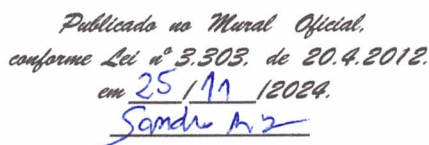 Publicado no Mural Oficial,
conforme Lei nº 3.303, de 20.4.2012.
em 25 / 11 /2024.
Sandra